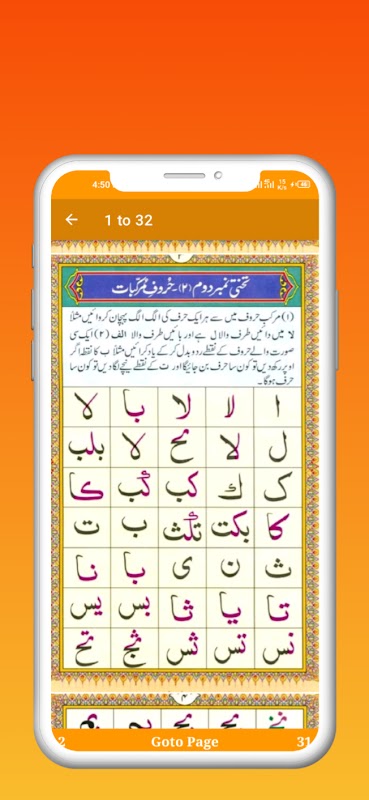 4:50
1 to 32
۲
تختی نمبر دوم (۲) - حُروفِ مُرکّبات
(۱) مرکب حروف میں سے ہر ایک حرف کی الگ الگ پہچان کروائیں مثلاً
لا میں دائیں طرف والا ل ہے اور بائیں طرف والا الف (۲) ایک سی
صورت والے حروف کے نقطے ردو بدل کر کے یاد کرائیں مثلاً ب کا نقطہ اگر
اوپر رکھ دیں تو کون سا حرف بن جائیگا اور ت کے نقطے نیچے لگا دیں تو کون سا
حرف ہوگا۔
ا لا لا با لا
ل لا مح لا بلب
ک ك کب گب کا
کا بکت تلث ب ت
ث ن ی با نا
تا یا ثا بس یس
نس تس ثس تح
۴
2 Goto Page 31